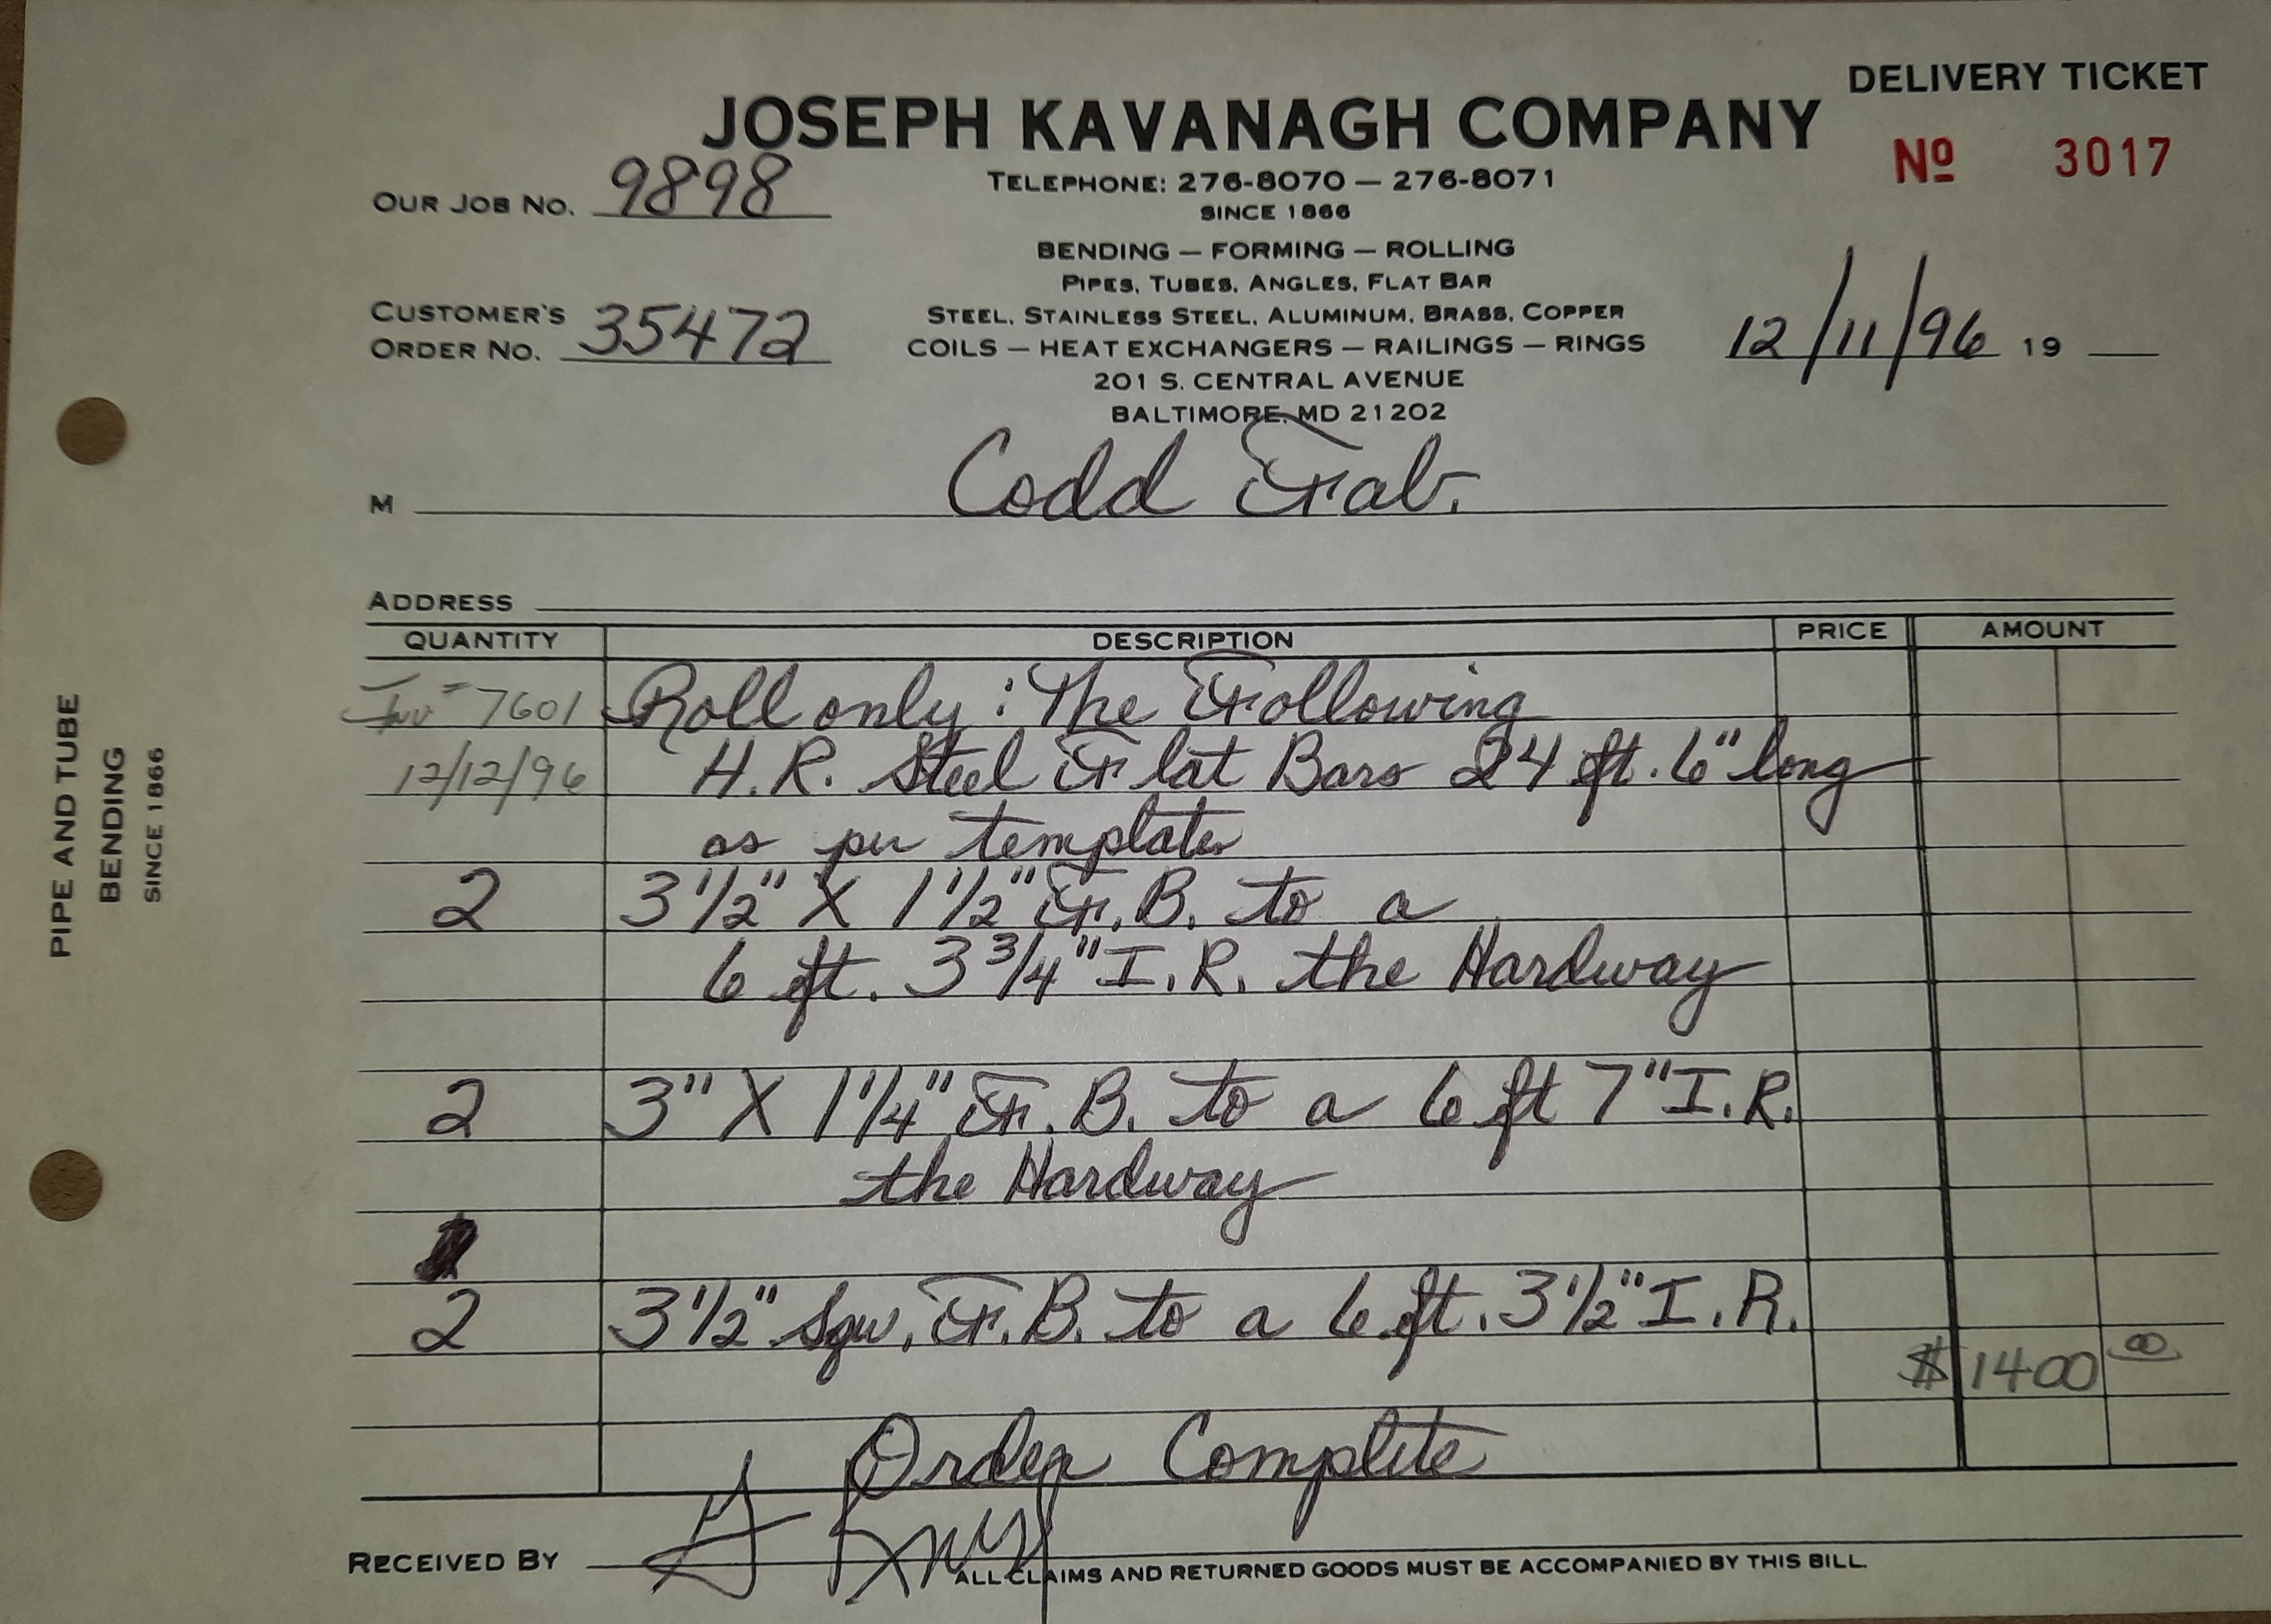 DELIVERY TICKET
JOSEPH KAVANAGH COMPANY
No 3017
OUR JOB NO. 9898
TELEPHONE: 276-8070 — 276-8071
SINCE 1866
BENDING — FORMING — ROLLING
PIPES, TUBES, ANGLES, FLAT BAR
CUSTOMER'S ORDER NO. 35472
STEEL, STAINLESS STEEL, ALUMINUM, BRASS, COPPER
COILS — HEAT EXCHANGERS — RAILINGS — RINGS
12/11/96 19
201 S. CENTRAL AVENUE
BALTIMORE, MD 21202
M Codd Fab.
ADDRESS
QUANTITY DESCRIPTION PRICE AMOUNT
Inv # 7601 Roll only : The Following
12/12/96 H.R. Steel Flat Bars 24 ft. 6" long
as per template
2 3 1/2" X 1 1/2" F.B. to a
6 ft. 3 3/4" I.R. the Hardway
2 3" X 1 1/4" F.B. to a 6 ft 7" I.R.
the Hardway
2 3 1/2" Squ. F.B. to a 6 ft. 3 1/2" I.R.
$ 1400 00
Order Complete
RECEIVED BY
ALL CLAIMS AND RETURNED GOODS MUST BE ACCOMPANIED BY THIS BILL.
PIPE AND TUBE
BENDING
SINCE 1866